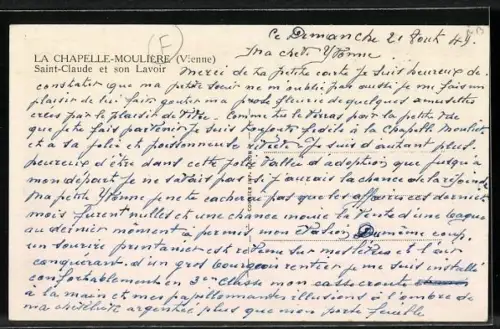 Ce Dimanche 21 Aout 49
(F)
Ma chere Yvonne
LA CHAPELLE-MOULIÈRE (Vienne)
Saint-Claude et son Lavoir
Merci de ta petite carte je suis heureux de
constater que ma petite soeur ne m'oublie pas aussi je me fais un
plaisir de lui faire gouter ma prose fleurie de quelques amusettes
crées par le plaisir de Comme tu le verras par la petite vue
que je te fais parvenir je suis toujours fidèle à la Chapelle Mouliere
et a sa jolie et poissonneuse je suis d'autant plus
heureux d'être dans cette jolie Vallée d'adoption que jusqu'à
mon départ je ne savais pas si j'aurais la chance de la rejoindre
Ma petite Yvonne je ne te cache pas que les affaires ces derniers
mois furent nulles et une chance inouie la vente d'une bague
au dernier moment a permis mon Du même coup
un sourire printanier est revenu sur mes lèvres et l'air
conquérant d'un gros bourgeois rentier je me suis installé
confortablement en 3eme classe mon casse croute
à la main et mes papillonnantes illusions à l'ombre de
ma argentée plus que mon porte feuille